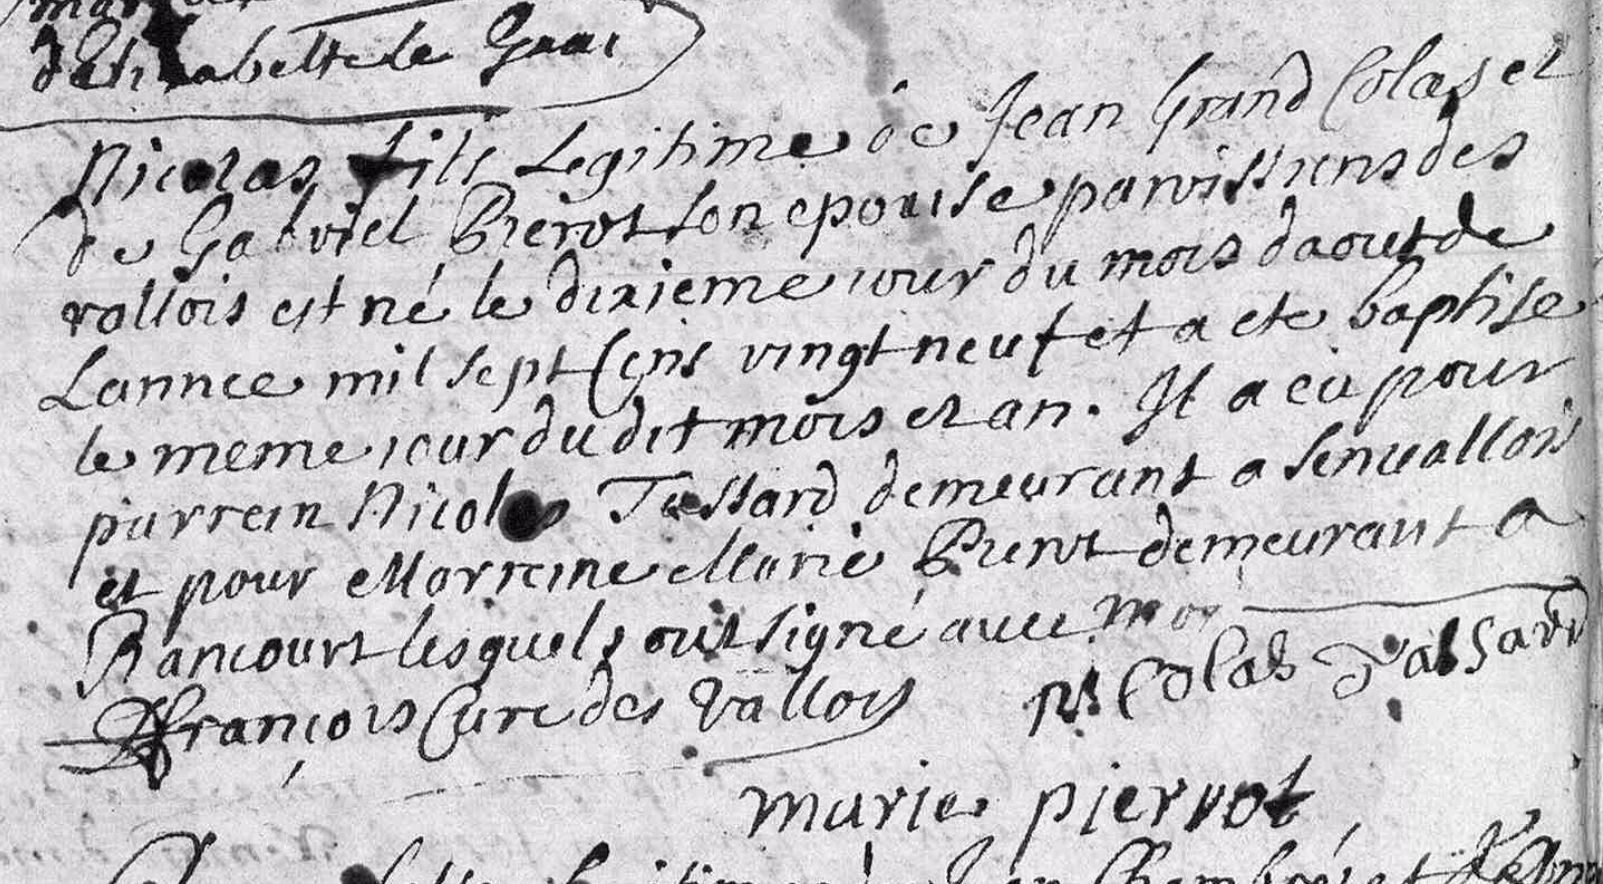 d'Elisabette le
Nicolas fils Legitime de Jean Grand Colas et
de Gabriel Pierot son epouise paroissiens des
vallois est né le dixieme iour du mois daout de
Lannee mil sept Cens vingt neuf et a ete baptise
le meme iour du dit mois et an. Il a eu pour
parrein Nicolas Tassard demeurant a Senvallois
et pour Marreine Marie Pierot demeurant a
Rancourt lesquels ont signé avec moy
François Cure des Vallois Nicolas Tassard
marie piervot